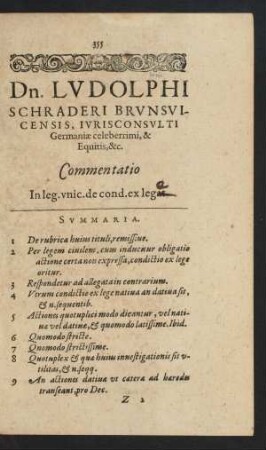 355
Dn. LVDOLPHI
SCHRADERI BRVNSVI-
CENSIS, IVRISCONSVLTI
Germaniæ celeberrimi, &
Equitis, &c.
Commentatio
In leg. vnic. de cond. ex lege
SVMMARIA.
1 De rubrica huius tituli, remissiue.
2 Per legem ciuilem, cum inducitur obligatio
actione certa non expressa, condictio ex lege
oritur.
3 Respondetur ad allegata in contrarium.
4 Vtrum condictio ex lege natiua an datiua sit,
& n. sequentib.
5 Actiones quotuplici modo dicantur, vel na-
tiuæ vel datiuæ, & quomodo latissime. Ibid.
6 Quomodo stricte.
7 Quomodo strictissime.
8 Quotuplex & qua huius inuestigationis sit v-
tilitas, & n. seqq.
9 An actiones datiua vt catera ad haredes
transeant, pro Dec.
Z 2